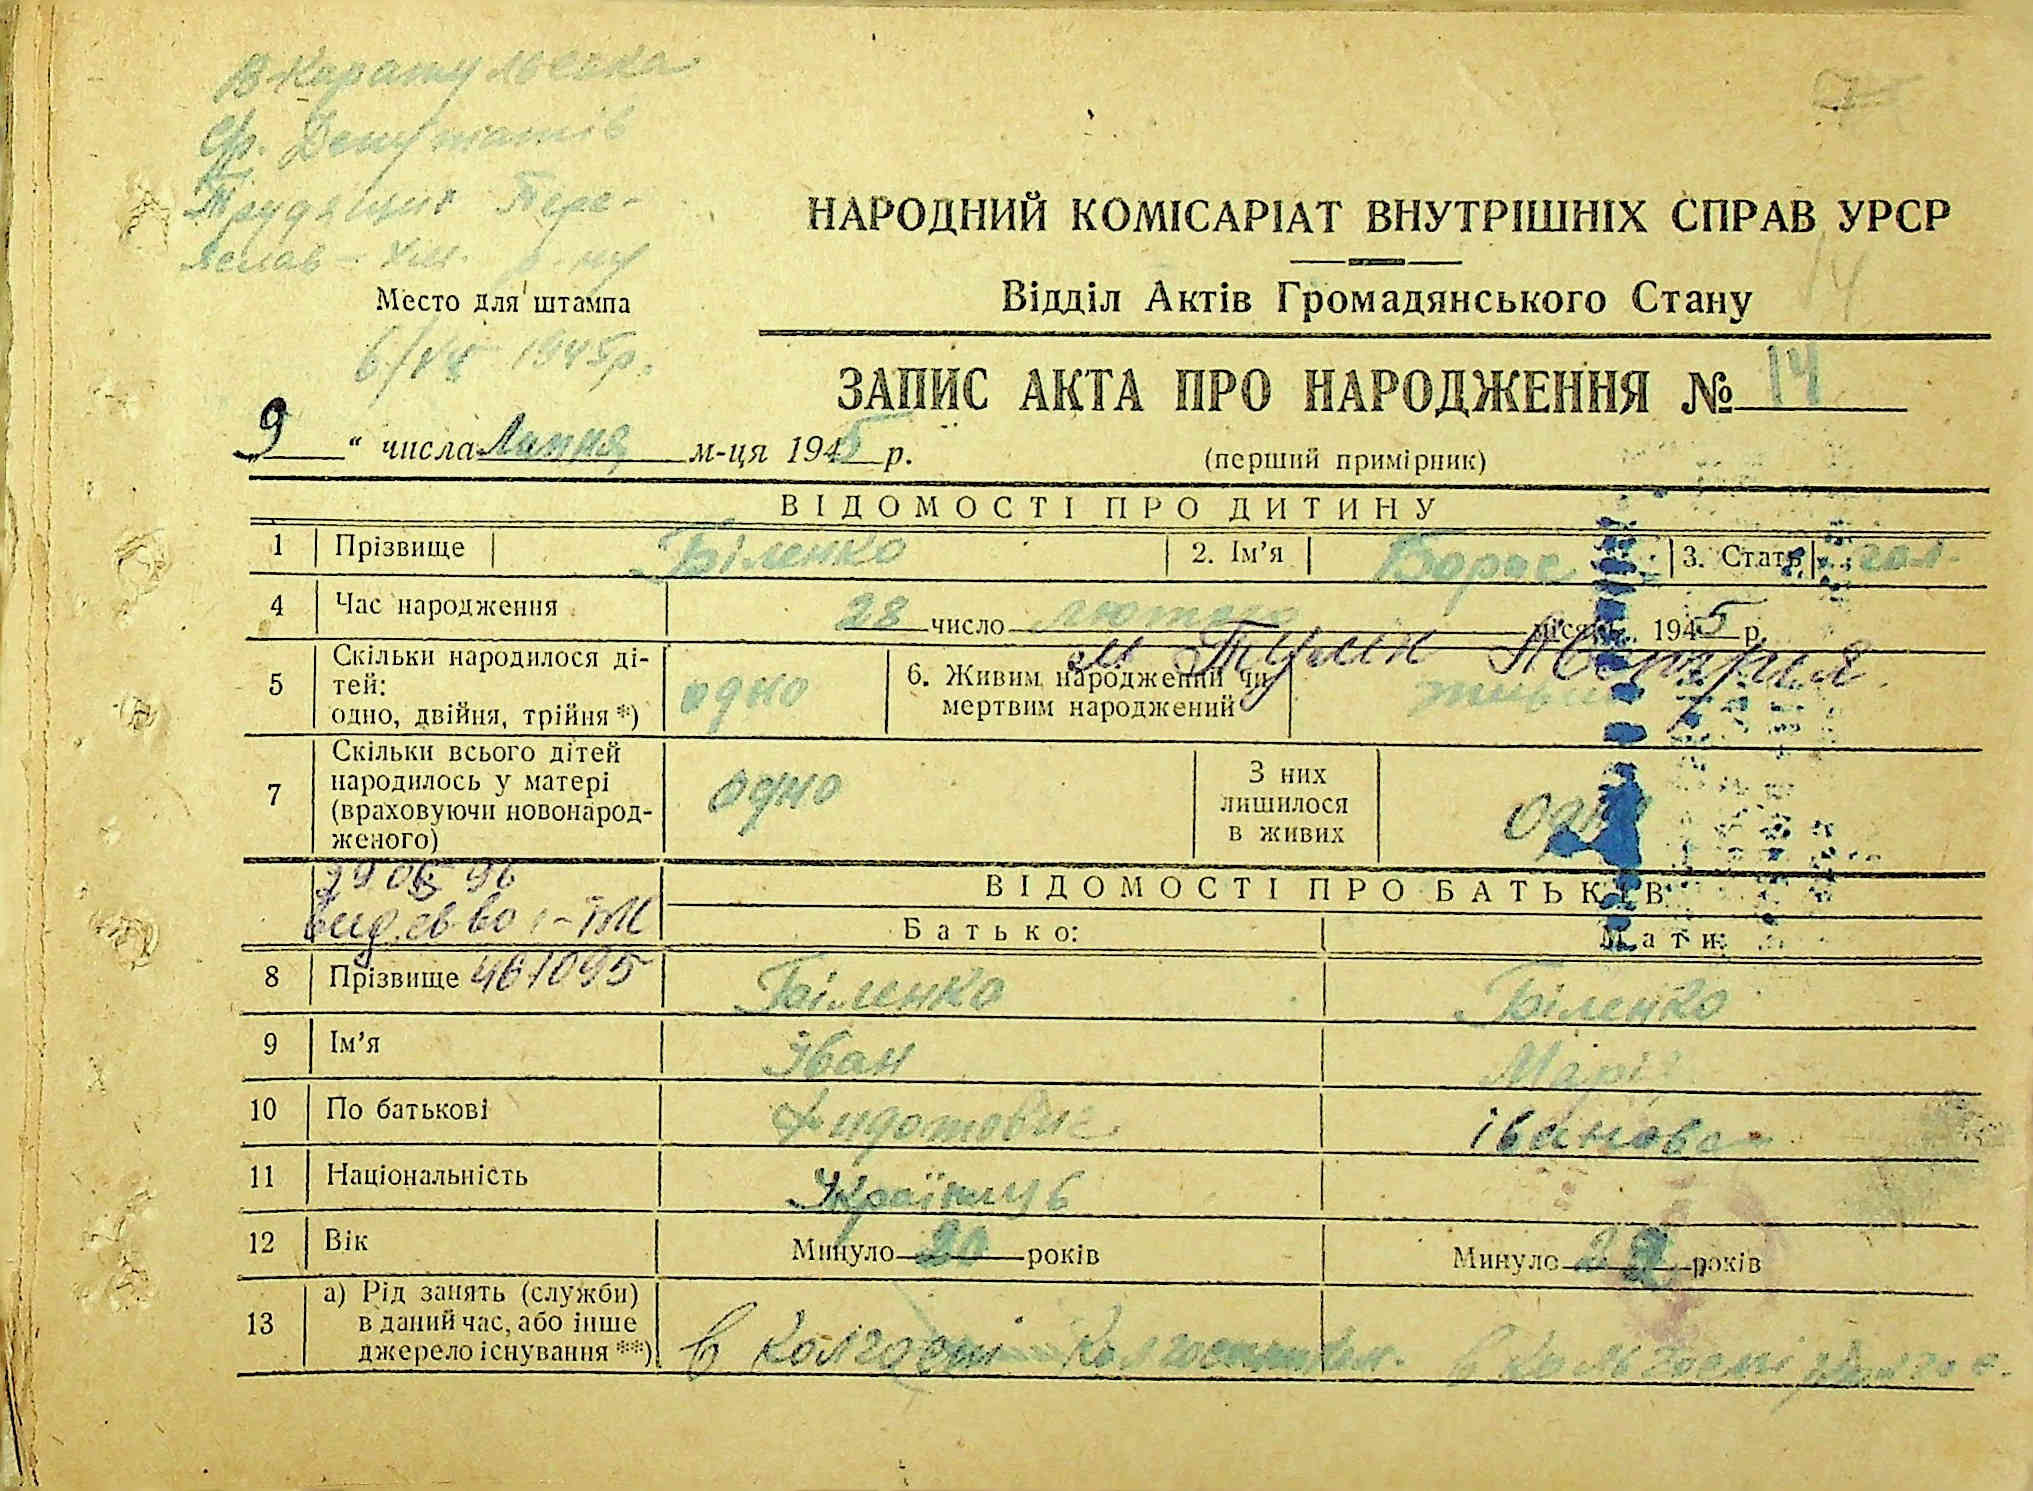 В Каратульська
Ср. Депутатів
Трудящих Пере-
яслав - Хм. р-ну
Место для штампа
6/VII 1945р.
НАРОДНИЙ КОМІСАРІАТ ВНУТРІШНІХ СПРАВ УРСР
Відділ Актів Громадянського Стану
14
ЗАПИС АКТА ПРО НАРОДЖЕННЯ № 14
„9“ числа Липня м-ця 1945 р.
(перший примірник)
ВІДОМОСТІ ПРО ДИТИНУ
1 Прізвище Біленко 2. Ім’я Борис 3. Стать чол.
4 Час народження 28 число лютого місяця 1945 р.
м Тулин Австрия
5 Скільки народилося ді-
тей:
одно, двійня, трійня *) одно
6. Живим народжений чи
мертвим народжений живим
7 Скільки всього дітей
народилось у матері
(враховуючи новонарод-
женого) одно
З них
лишилося
в живих одно
29 05 96
вид. св-во 1-БК
461095
ВІДОМОСТІ ПРО БАТЬКІВ
Батько: Мати:
8 Прізвище Біленко Біленко
9 Ім’я Іван Марія
10 По батькові Федотович Івановна
11 Національність Українць
12 Вік Минуло 20 років Минуло 22 років
13 а) Рід занять (служби)
в даний час, або інше
джерело існування **) в Колгоспі в Кольгоспі